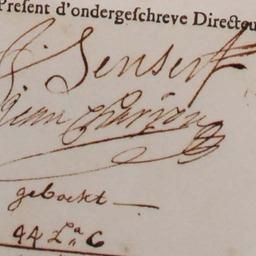 Present d'ondergeschreve Directeu
Sensert
Jean Charron
geboekt
44 La C